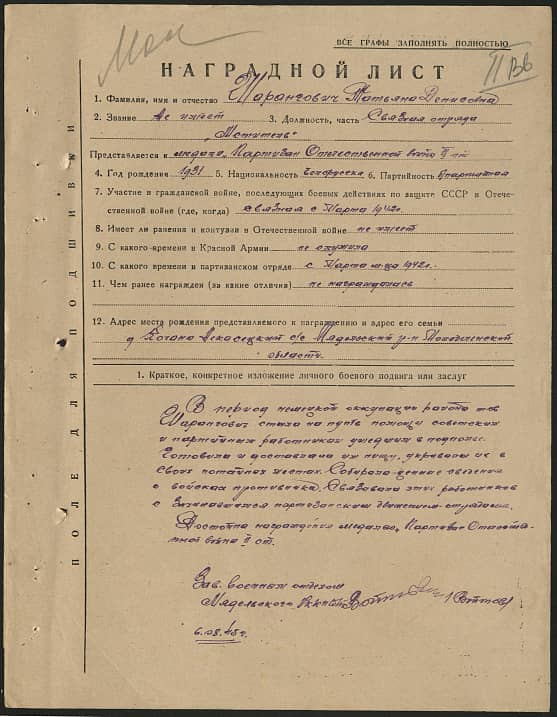 ВСЕ ГРАФЫ ЗАПОЛНЯТЬ ПОЛНОСТЬЮ
НАГРАДНОЙ ЛИСТ
1. Фамилия, имя и отчество Шарангович Татьяна Денисовна
2. Звание не имеет 3. Должность, часть Связная отряда
"Мститель"
Представляется к медали "Партизан Отечественной войны II ст
4. Год рождения 1931 5. Национальность белоруска 6. Партийность б/партийная
7. Участие в гражданской войне, последующих боевых действиях по защите СССР и Отече-
ственной войне (где, когда) связная с Марта 1942г.
8. Имеет ли ранения и контузии в Отечественной войне не имеет
9. С какого-времени в Красной Армии не служила
10. С какого времени в партизанском отряде с Марта м-ца 1942г.
11. Чем ранее награжден (за какие отличия) не награждалась
12. Адрес места рождения представляемого к награждению и адрес его семьи
д. с/с Мядельский р-н Молодеченской
области.
1. Краткое, конкретное изложение личного боевого подвига или заслуг
В период немецкой оккупации работа тов
Шарангович стала на путь помощи советских
и партийных работникам ушедшим в подполье.
Готовила и доставляла им пищу, укрывала их в
своих потайных местах. Собирала ценные сведения
о войсках противника. Связовала этих работников
с партизанским движением-отрядами.
Достойна награждения медалью "Партизан Отечеств-
ой войны II ст.
Зав. военным отделом
Мядельского
6.08.48г.
ПОЛЕ ДЛЯ ПОДШИВКИ